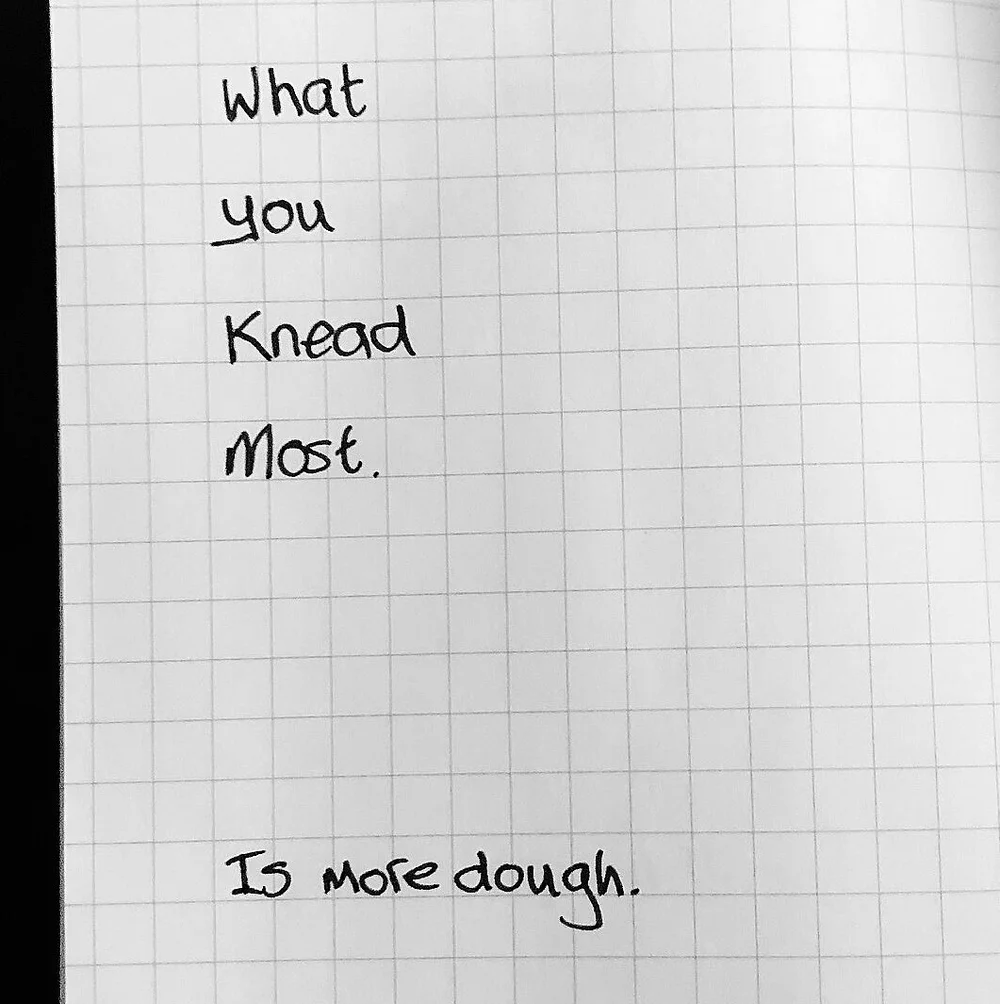 What
you
Knead
Most.
Is more dough.